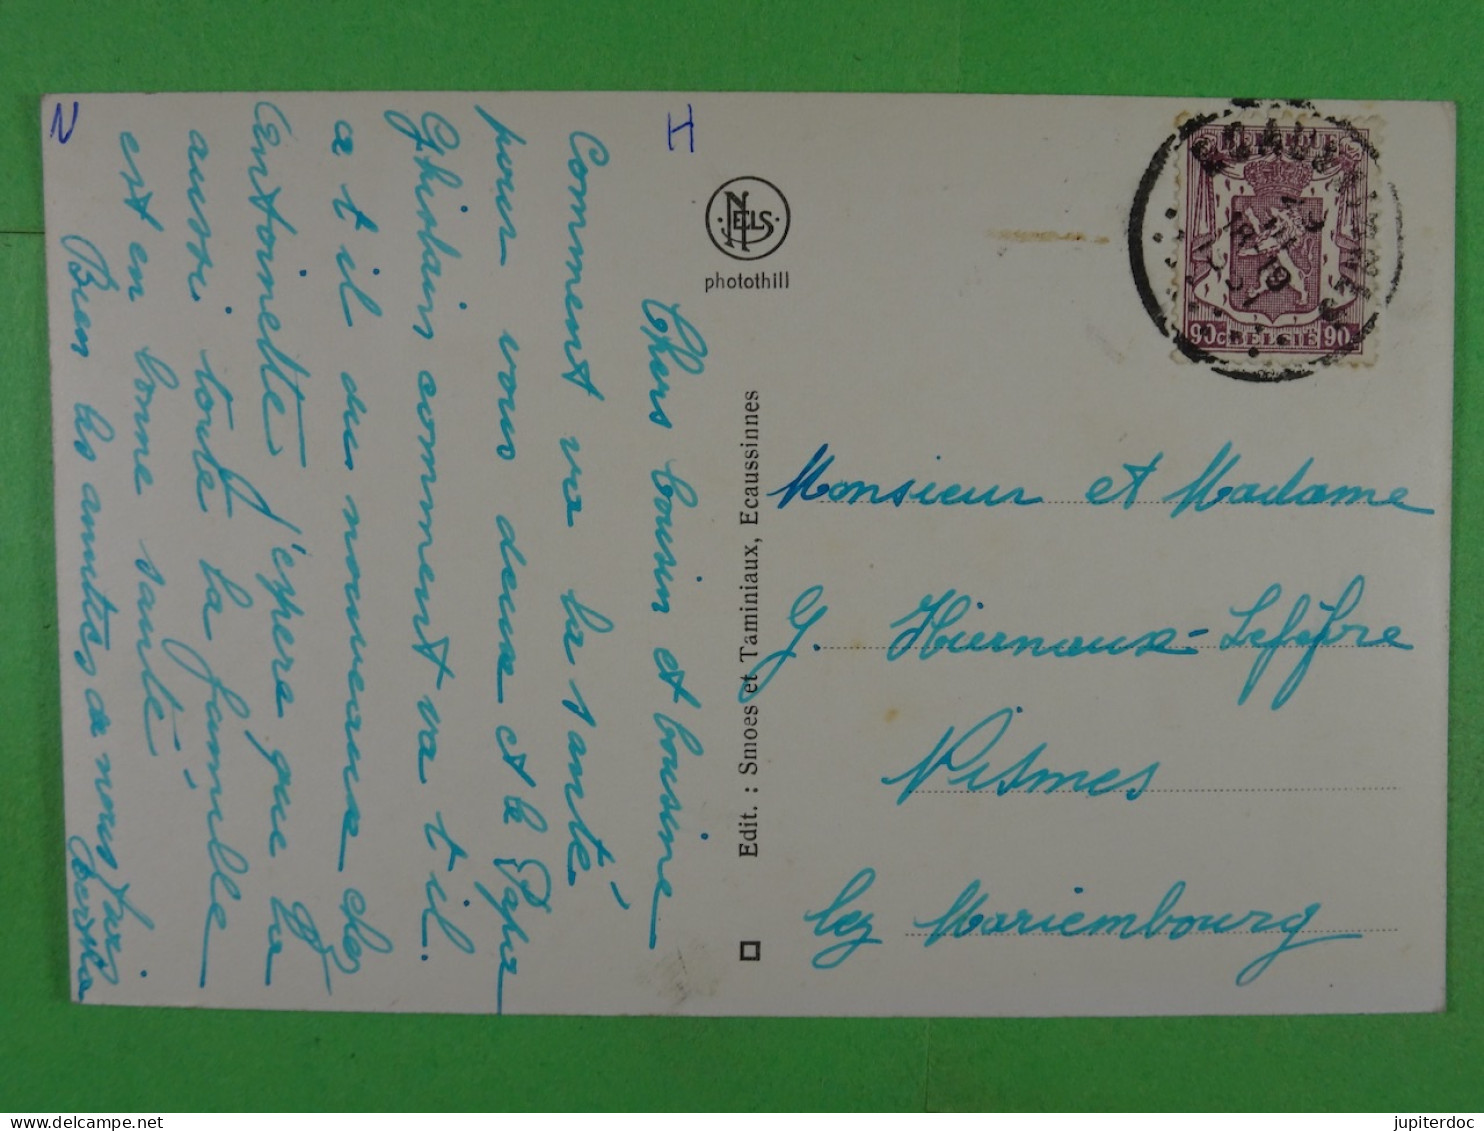 I
Chers Cousin et Cousine
Comment va la santé
pour vous deux et le Papa
Ghislain comment va t'il
a t il du nouveaux chez
Antoinette J'espere que
aussi toute la famille
est en bonne santé
Bien les amitiés de nous
N
NELS
photothill
Edit. : Smoes et Taminiaux, Ecaussinnes
BELGIQUE
90c BELGIE 90
ECAUSSINNES
Monsieur et Madame
G. Hiernaux-Lefèbre
Nismes
lez Mariembourg
jupiterdoc
delcampe.net